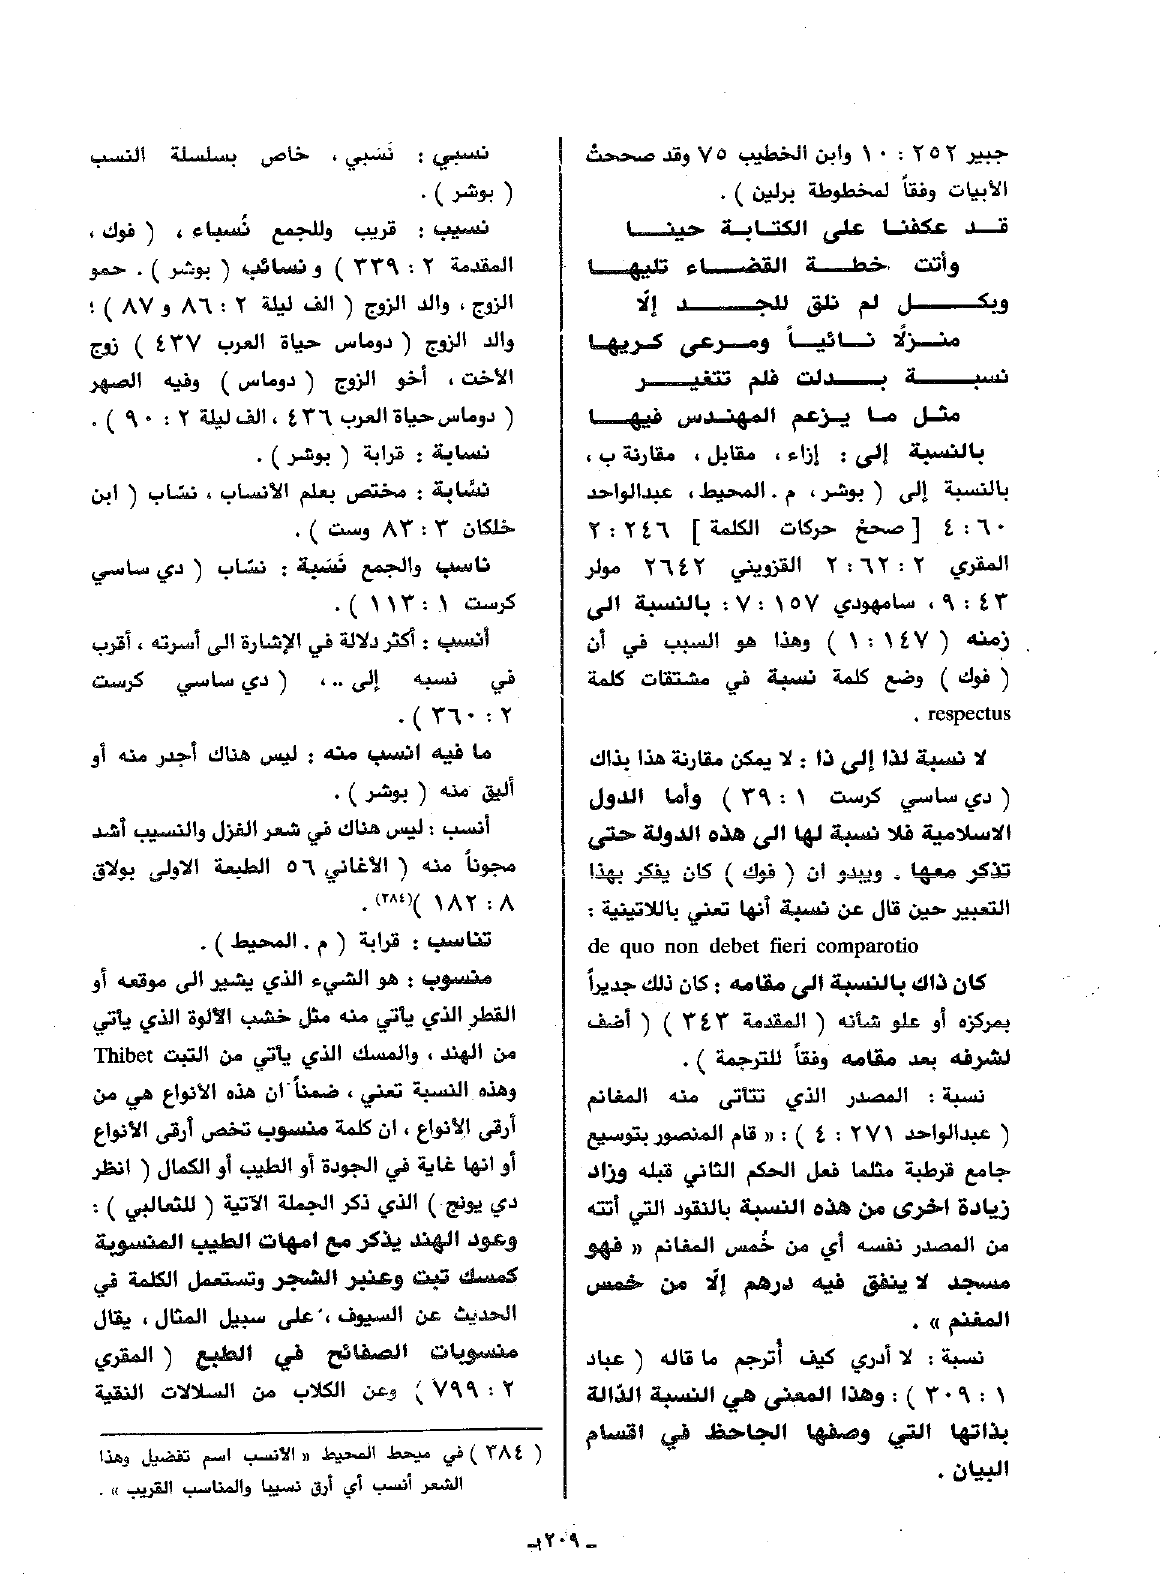 جبير ٢٥٢ : ١٠ وابن الخطيب ٧٥ وقد صححتُ
الأبيات وفقاً لمخطوطة برلين ) .
قد عكفنا على الكتابة حينا
وأتت خطة القضاء تليها
وبكل لم نلق للجد إلّا
منزلًا نائياً ومرعى كريها
نسبة بدلت فلم تتغير
مثل ما يزعم المهندس فيها
بالنسبة إلى : إزاء ، مقابل ، مقارنة ب ،
بالنسبة إلى ( بوشر ، م . المحيط ، عبدالواحد
٦٠ : ٤ [ صحح حركات الكلمة ] ٢٤٦ : ٢
المقري ٢ : ٦٢ : ٢ القزويني ٢ ٢٦٤ مولر
٤٣ : ٩ ، سامهودي ١٥٧ : ٧ : بالنسبة الى
زمنه ( ١٤٧ : ١ ) وهذا هو السبب في أن
( فوك ) وضع كلمة نسبة في مشتقات كلمة
respectus .
لا نسبة لذا إلى ذا : لا يمكن مقارنة هذا بذاك
( دي ساسي كرست ١ : ٣٩ ) وأما الدول
الاسلامية فلا نسبة لها الى هذه الدولة حتى
تذكر معها . ويبدو ان ( فوك ) كان يفكر بهذا
التعبير حين قال عن نسبة أنها تعني باللاتينية :
de quo non debet fieri comparotio
كان ذاك بالنسبة الى مقامه : كان ذلك جديراً
بمركزه أو علو شأنه ( المقدمة ٣٤٣ ) ( أضف
لشرفه بعد مقامه وفقاً للترجمة ) .
نسبة : المصدر الذي تتأتى منه المغانم
( عبدالواحد ٢٧١ : ٤ ) : « قام المنصور بتوسيع
جامع قرطبة مثلما فعل الحكم الثاني قبله وزاد
زيادة اخرى من هذه النسبة بالنقود التي أتته
من المصدر نفسه أي من خُمس المغانم « فهو
مسجد لا ينفق فيه درهم إلّا من خمس
المغنم » .
نسبة : لا أدري كيف أُترجم ما قاله ( عباد
١ : ٣٠٩ ) : وهذا المعنى هي النسبة الذّالة
بذاتها التي وصفها الجاحظ في اقسام
البيان .
نسبي : نَسَبي ، خاص بسلسلة النسب
( بوشر ) .
نسيب : قريب وللجمع نُسباء ، ( فوك ،
المقدمة ٢ : ٣٣٩ ) و نسائب ( بوشر ) . حمو
الزوج ، والد الزوج ( الف ليلة ٢ : ٨٦ و ٨٧ ) ؛
والد الزوج ( دوماس حياة العرب ٤٣٧ ) زوج
الأخت ، أخو الزوج ( دوماس ) وفيه الصهر
( دوماس حياة العرب ٤٣٦ ، الف ليلة ٢ : ٩٠ ) .
نسابة : قرابة ( بوشر ) .
نسّابة : مختص بعلم الأنساب ، نسّاب ( ابن
خلكان ٣ : ٨٣ وست ) .
ناسب والجمع نَسَبة : نسّاب ( دي ساسي
كرست ١ : ١١٣ ) .
أنسب : أكثر دلالة في الإشارة الى أسرته ، أقرب
في نسبه إلى .. ، ( دي ساسي كرست
٢ : ٣٦٠ ) .
ما فيه انسب منه : ليس هناك أجدر منه أو
أليق منه ( بوشر ) .
أنسب : ليس هناك في شعر الغزل والنسيب أشد
مجوناً منه ( الأغاني ٥٦ الطبعة الاولى بولاق
٨ : ١٨٢ )(٣٨٤) .
تناسب : قرابة ( م . المحيط ) .
منسوب : هو الشيء الذي يشير الى موقعه أو
القطر الذي يأتي منه مثل خشب الألوة الذي يأتي
من الهند ، والمسك الذي يأتي من التبت Thibet
وهذه النسبة تعني ، ضمناً ان هذه الأنواع هي من
أرقى الأنواع ، ان كلمة منسوب تخص أرقى الأنواع
أو انها غاية في الجودة أو الطيب أو الكمال ( انظر
دي يونج ) الذي ذكر الجملة الآتية ( للثعالبي ) :
وعود الهند يذكر مع امهات الطيب المنسوبة
كمسك تبت وعنبر الشجر وتستعمل الكلمة في
الحديث عن السيوف ، على سبيل المثال ، يقال
منسوبات الصفائح في الطبع ( المقري
٢ : ٧٩٩ ) وعن الكلاب من السلالات النقية
( ٣٨٤ ) في ميحط المحيط « الأنسب اسم تفضيل وهذا
الشعر أنسب أي أرق نسيبا والمناسب القريب » .
ـ ٢٠٩ ـ